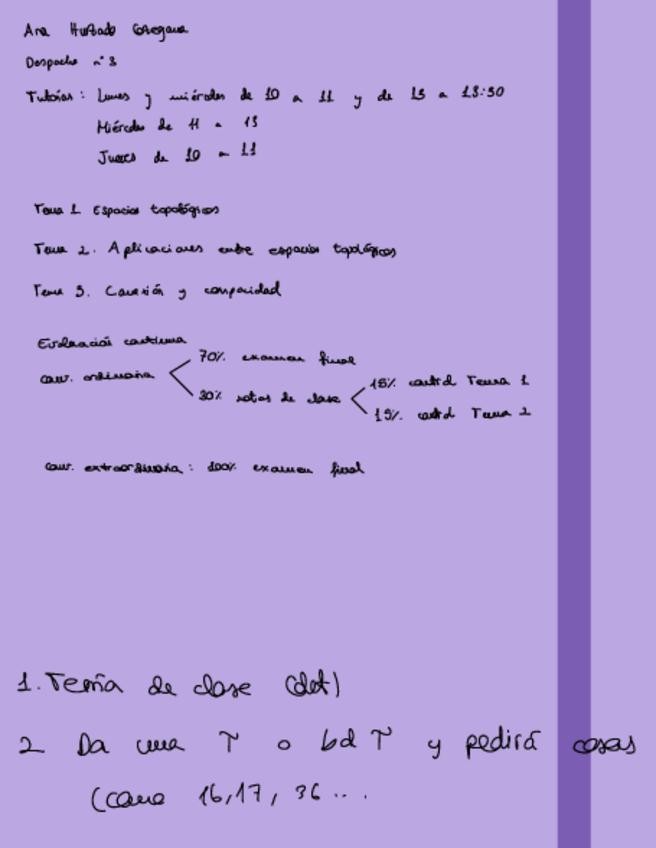 Ana Hurtado
Despacho nº 3
Tutorías: Lunes y miércoles de 10 a 11 y de 13 a 13:30
Miércoles de 11 a 13
Jueves de 10 a 11
Tema 1 Espacios topológicos
Tema 2. Aplicaciones entre espacios topológicos
Tema 3. Conexión y compacidad
Evaluación continua
conv. ordinaria
70% examen final
30% notas de clase
15% control Tema 1
15% control Tema 2
conv. extraordinaria: 100% examen final
1. Teoría de clase (det)
2 Da una T o bd T y pedirá cosas
(como 16,17, 36...